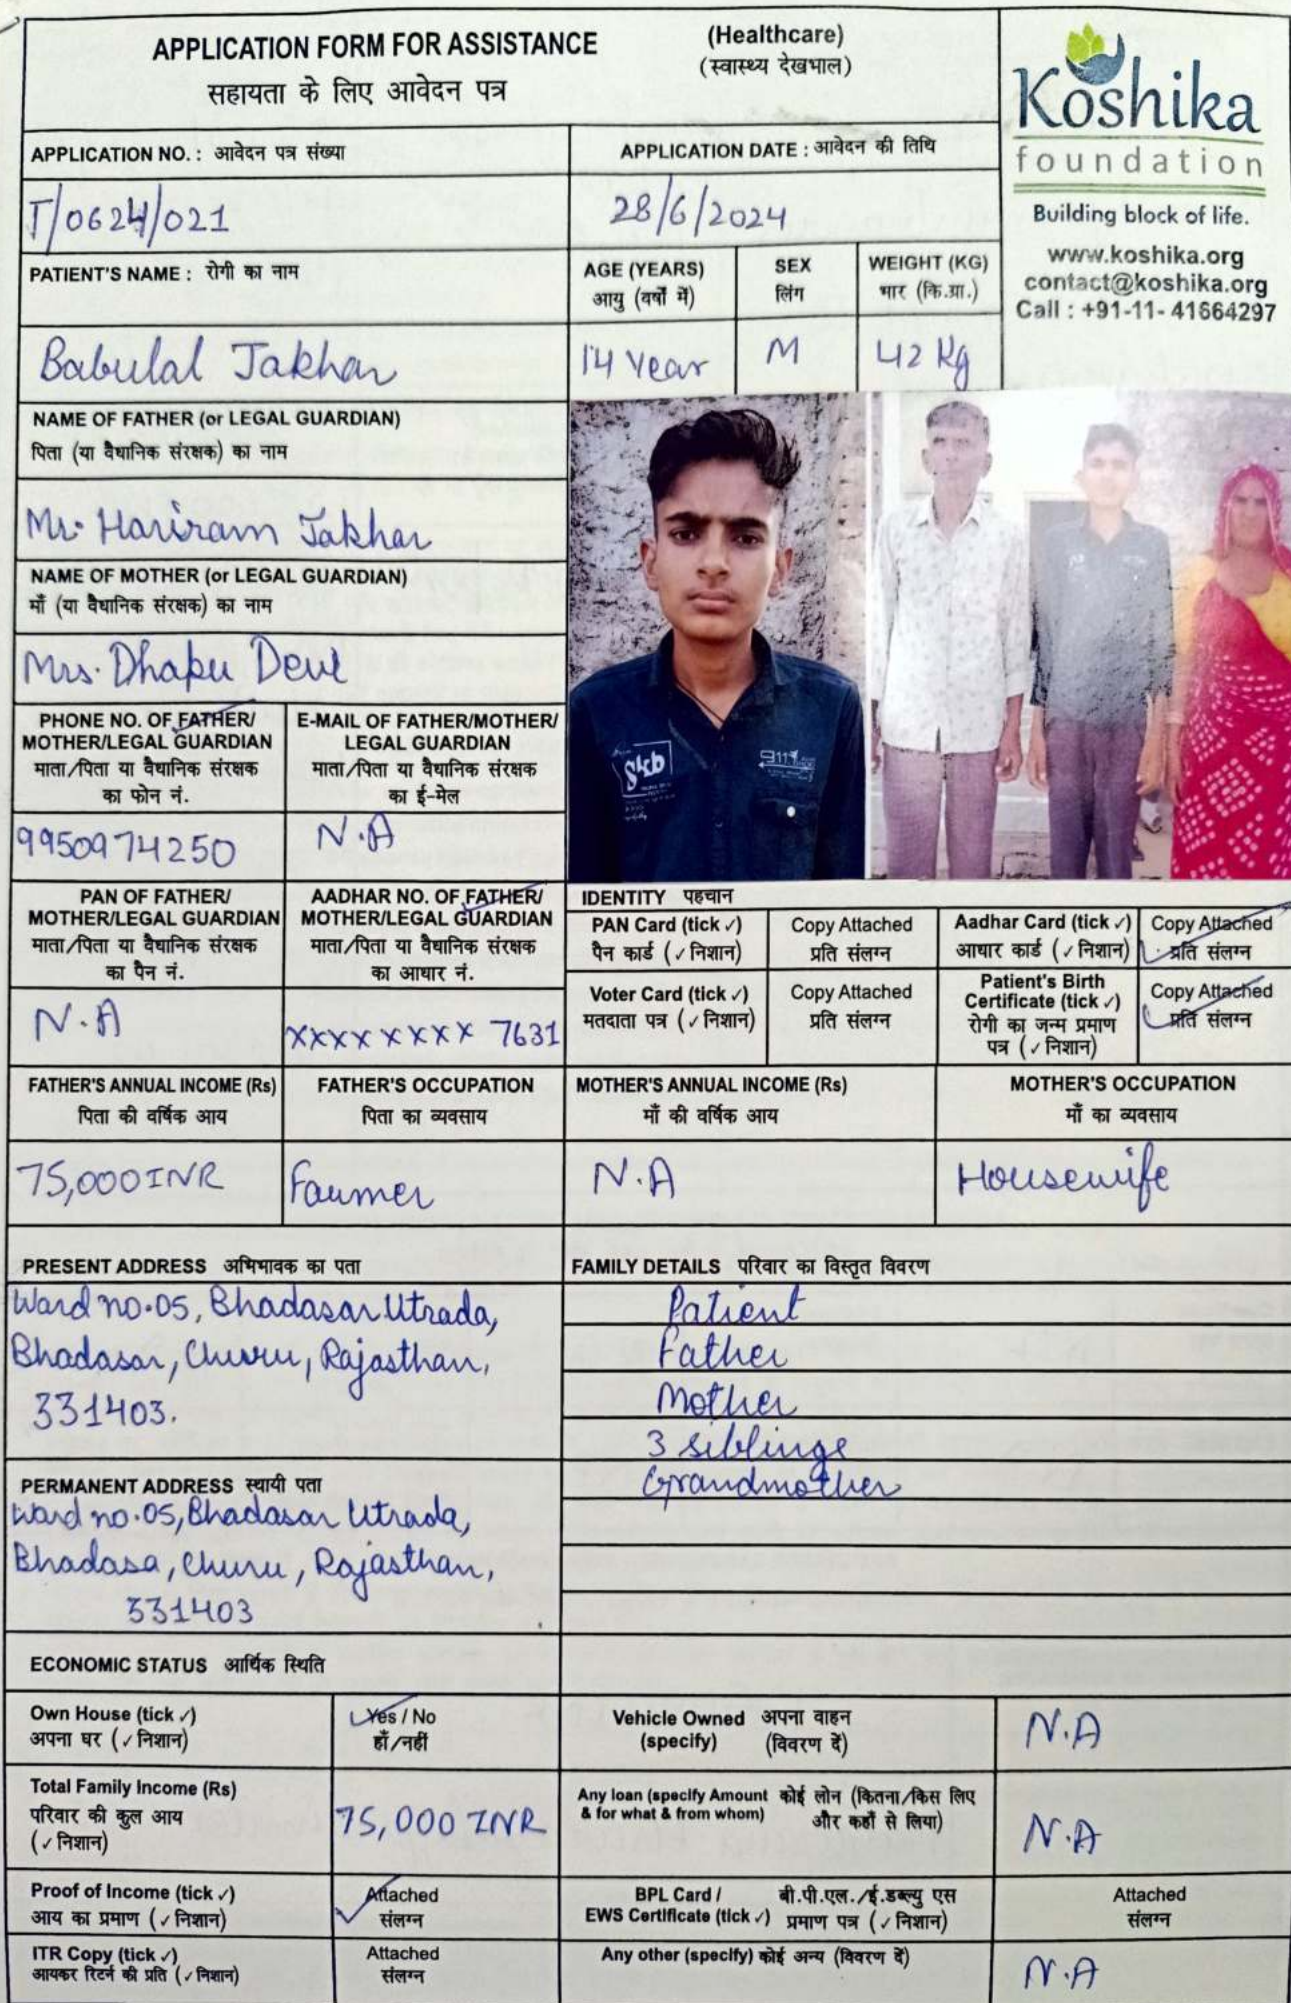 APPLICATION FORM FOR ASSISTANCE
(Healthcare)
सहायता के लिए आवेदन पत्र
(स्वास्थ्य देखभाल)
Koshika
foundation
Building block of life.
www.koshika.org
contact@koshika.org
Call : +91-11- 41664297
APPLICATION NO. : आवेदन पत्र संख्या
APPLICATION DATE : आवेदन की तिथि
T/0624/021
28/6/2024
PATIENT'S NAME : रोगी का नाम
AGE (YEARS)
आयु (वर्षों में)
SEX
लिंग
WEIGHT (KG)
भार (कि.ग्रा.)
Babulal Jakhar
14 Year
M
42 Kg
NAME OF FATHER (or LEGAL GUARDIAN)
पिता (या वैधानिक संरक्षक) का नाम
Mr. Hariram Jakhar
NAME OF MOTHER (or LEGAL GUARDIAN)
माँ (या वैधानिक संरक्षक) का नाम
Mrs. Dhapu Devi
PHONE NO. OF FATHER/
MOTHER/LEGAL GUARDIAN
माता/पिता या वैधानिक संरक्षक
का फोन नं.
E-MAIL OF FATHER/MOTHER/
LEGAL GUARDIAN
माता/पिता या वैधानिक संरक्षक
का ई-मेल
9950974250
N.A
PAN OF FATHER/
MOTHER/LEGAL GUARDIAN
माता/पिता या वैधानिक संरक्षक
का पैन नं.
AADHAR NO. OF FATHER/
MOTHER/LEGAL GUARDIAN
माता/पिता या वैधानिक संरक्षक
का आधार नं.
N.A
XXXX XXXX 7631
IDENTITY पहचान
PAN Card (tick ✓)
पैन कार्ड (✓ निशान)
Copy Attached
प्रति संलग्न
Aadhar Card (tick ✓)
आधार कार्ड (✓ निशान)
Copy Attached
प्रति संलग्न
Voter Card (tick ✓)
मतदाता पत्र (✓ निशान)
Copy Attached
प्रति संलग्न
Patient's Birth
Certificate (tick ✓)
रोगी का जन्म प्रमाण
पत्र (✓ निशान)
Copy Attached
प्रति संलग्न
FATHER'S ANNUAL INCOME (Rs)
पिता की वर्षिक आय
FATHER'S OCCUPATION
पिता का व्यवसाय
MOTHER'S ANNUAL INCOME (Rs)
माँ की वर्षिक आय
MOTHER'S OCCUPATION
माँ का व्यवसाय
75,000 INR
Farmer
N.A
Housewife
PRESENT ADDRESS अभिभावक का पता
Ward no.05, Bhadasar Utrada,
Bhadasar, Churu, Rajasthan,
331403.
PERMANENT ADDRESS स्थायी पता
Ward no.05, Bhadasar Utrada,
Bhadasa, Churu, Rajasthan,
331403
FAMILY DETAILS परिवार का विस्तृत विवरण
Patient
Father
Mother
3 siblings
Grandmother
ECONOMIC STATUS आर्थिक स्थिति
Own House (tick ✓)
अपना घर (✓ निशान)
Yes / No
हाँ/नहीं
Vehicle Owned अपना वाहन
(specify) (विवरण दें)
N.A
Total Family Income (Rs)
परिवार की कुल आय
(✓ निशान)
75,000 INR
Any loan (specify Amount कोई लोन (कितना/किस लिए
& for what & from whom) और कहाँ से लिया)
N.A
Proof of Income (tick ✓)
आय का प्रमाण (✓ निशान)
Attached
संलग्न
BPL Card / बी.पी.एल./ई.डब्ल्यु एस
EWS Certificate (tick ✓) प्रमाण पत्र (✓ निशान)
Attached
संलग्न
ITR Copy (tick ✓)
आयकर रिटर्न की प्रति (✓ निशान)
Attached
संलग्न
Any other (specify) कोई अन्य (विवरण दें)
N.A